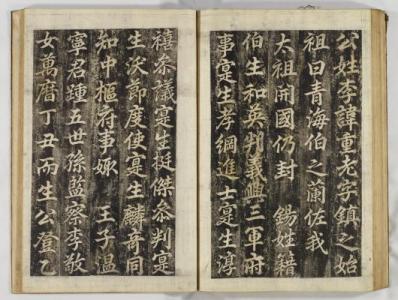 公姓李諱重老字鎭之始
祖曰青海伯之蘭佐我
太祖開國仍封 錫姓籍
伯生和英判義興三軍府
事寔生孝綱進士寔生淳
禧叅議寔生挺傑叅判寔
生沃節度使寔生麟奇同
知中樞府事娵 王子溫
寧君 五世孫監察李敬
女萬曆丁丑而生公登乙